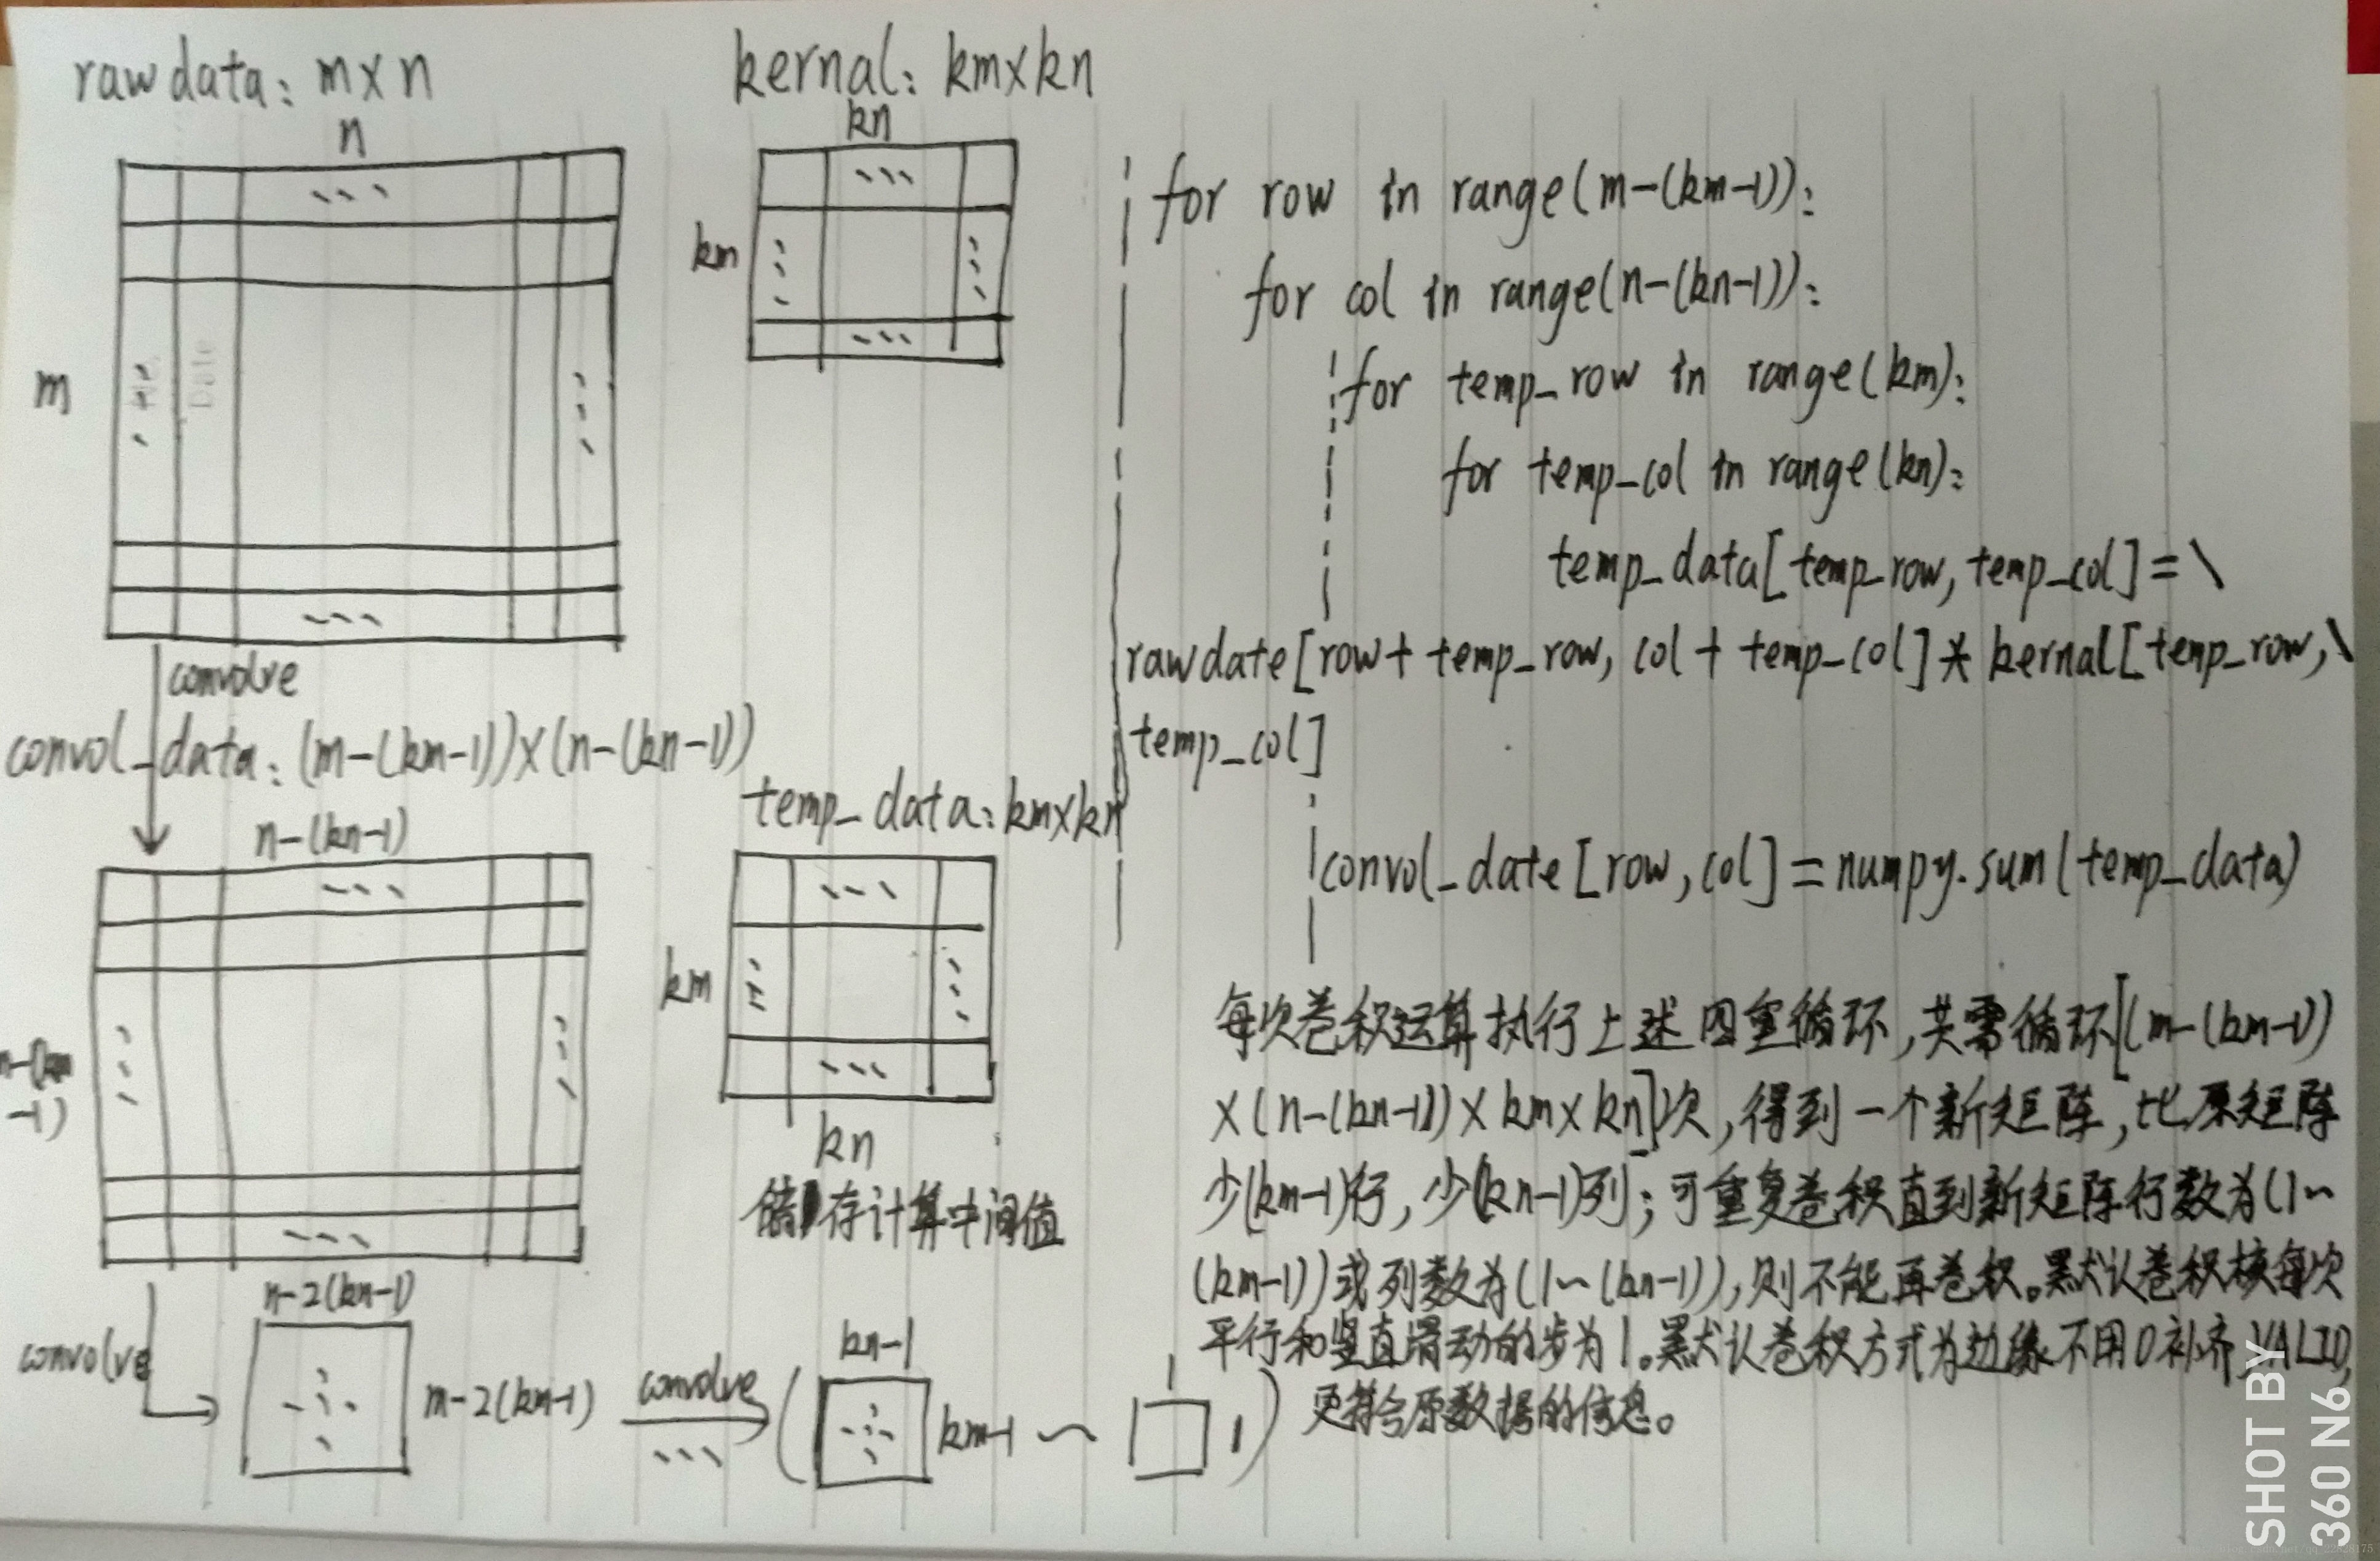 rawdata: m×n
n
m
No.
Date
convolve
convol_data: (m-(km-1))×(n-(kn-1))
n-(kn-1)
-1)
convolve
n-2(kn-1)
m-2(km-1)
convolve
kn-1
km-1 ~
1
1
kernal: km×kn
kn
km
temp_data: km×kn
km
kn
储存计算中间值
for row in range(m-(km-1)):
for col in range(n-(kn-1)):
for temp_row in range(km):
for temp_col in range(kn):
temp_data[temp_row, temp_col] = \
rawdate[row+temp_row, col+temp_col]*kernal[temp_row,\
temp_col]
convol_date[row,col]=numpy.sum(temp_data)
每次卷积运算执行上述四重循环,共需循环[(m-(km-1))
×(n-(kn-1))×km×kn]次,得到一个新矩阵,比原矩阵
少(km-1)行,少(kn-1)列;可重复卷积直到新矩阵行数为(1~
(km-1))或列数为(1~(kn-1)),则不能再卷积。默认卷积核每次
平行和竖直滑动的步为1。默认卷积方式为边缘不用0补齐,VALID,
更符合原数据的信息。
SHOT BY
360 N6